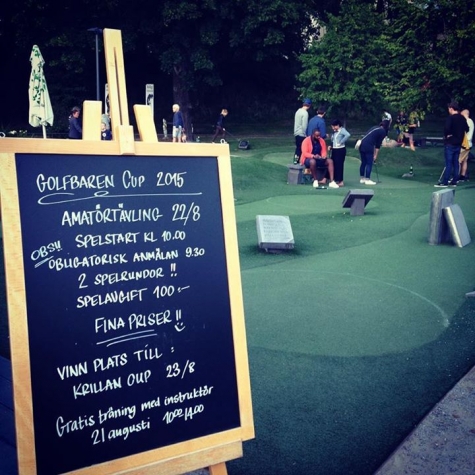 GOLFBAREN CUP 2015
AMATÖRTÄVLING 22/8
OBS!! SPELSTART KL 10.00
OBLIGATORISK ANMÄLAN 9.30
2 SPELRUNDOR !!
SPELAVGIFT 100:-
FINA PRISER !!
VINN PLATS TILL :
KRILLAN CUP 23/8
Gratis träning med instruktör
21 augusti 10.00-14.00